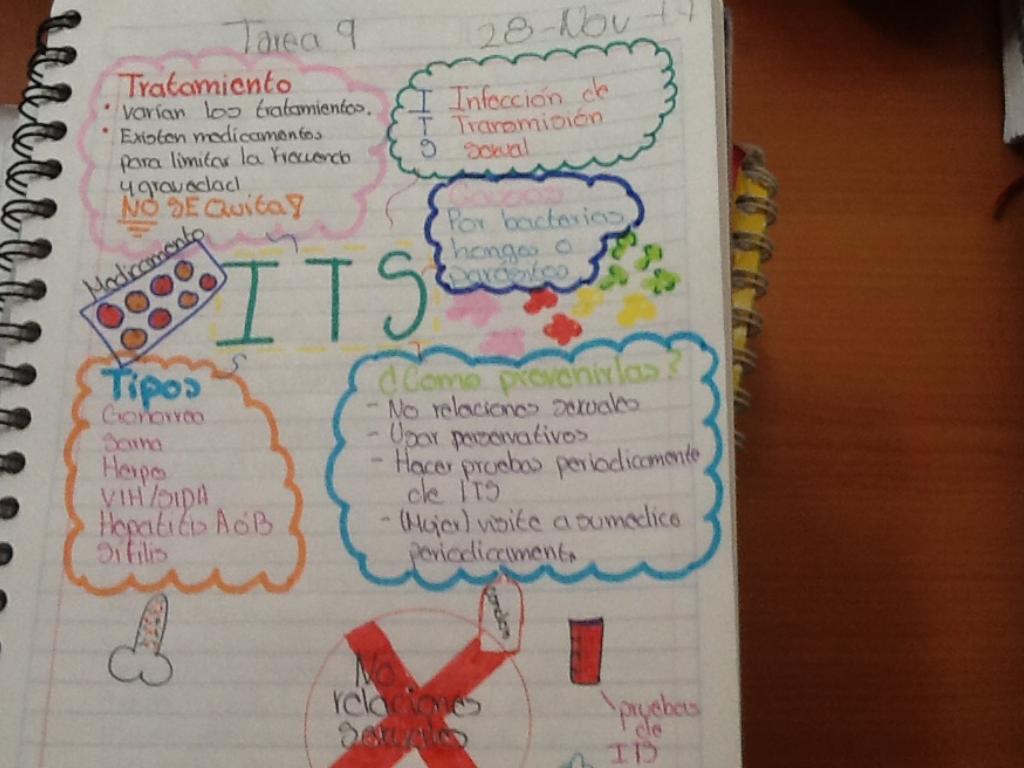 Tarea 9
28-Nov-17
Tratamiento
• varían los tratamientos.
• Existen medicamentos
para limitar la frecuencia
y gravedad
NO SE Quita8
I Infección de
T Transmisión
S sexual
Causas
Por bacterias
hongos o
Medicamento
ITS
Tipos
Gonorrea
Sarna
Herpes
VIH/SIDA
Hepatitis A ó B
Sifilis
¿Como prevenirlas?
- No relaciones sexuales
- Usar perservativos
- Hacer pruebas periodicamente
de ITS
- (Mujer) visite a su medico
periodicamente
condon
No
relaciones
sexuales
pruebas
de
ITS